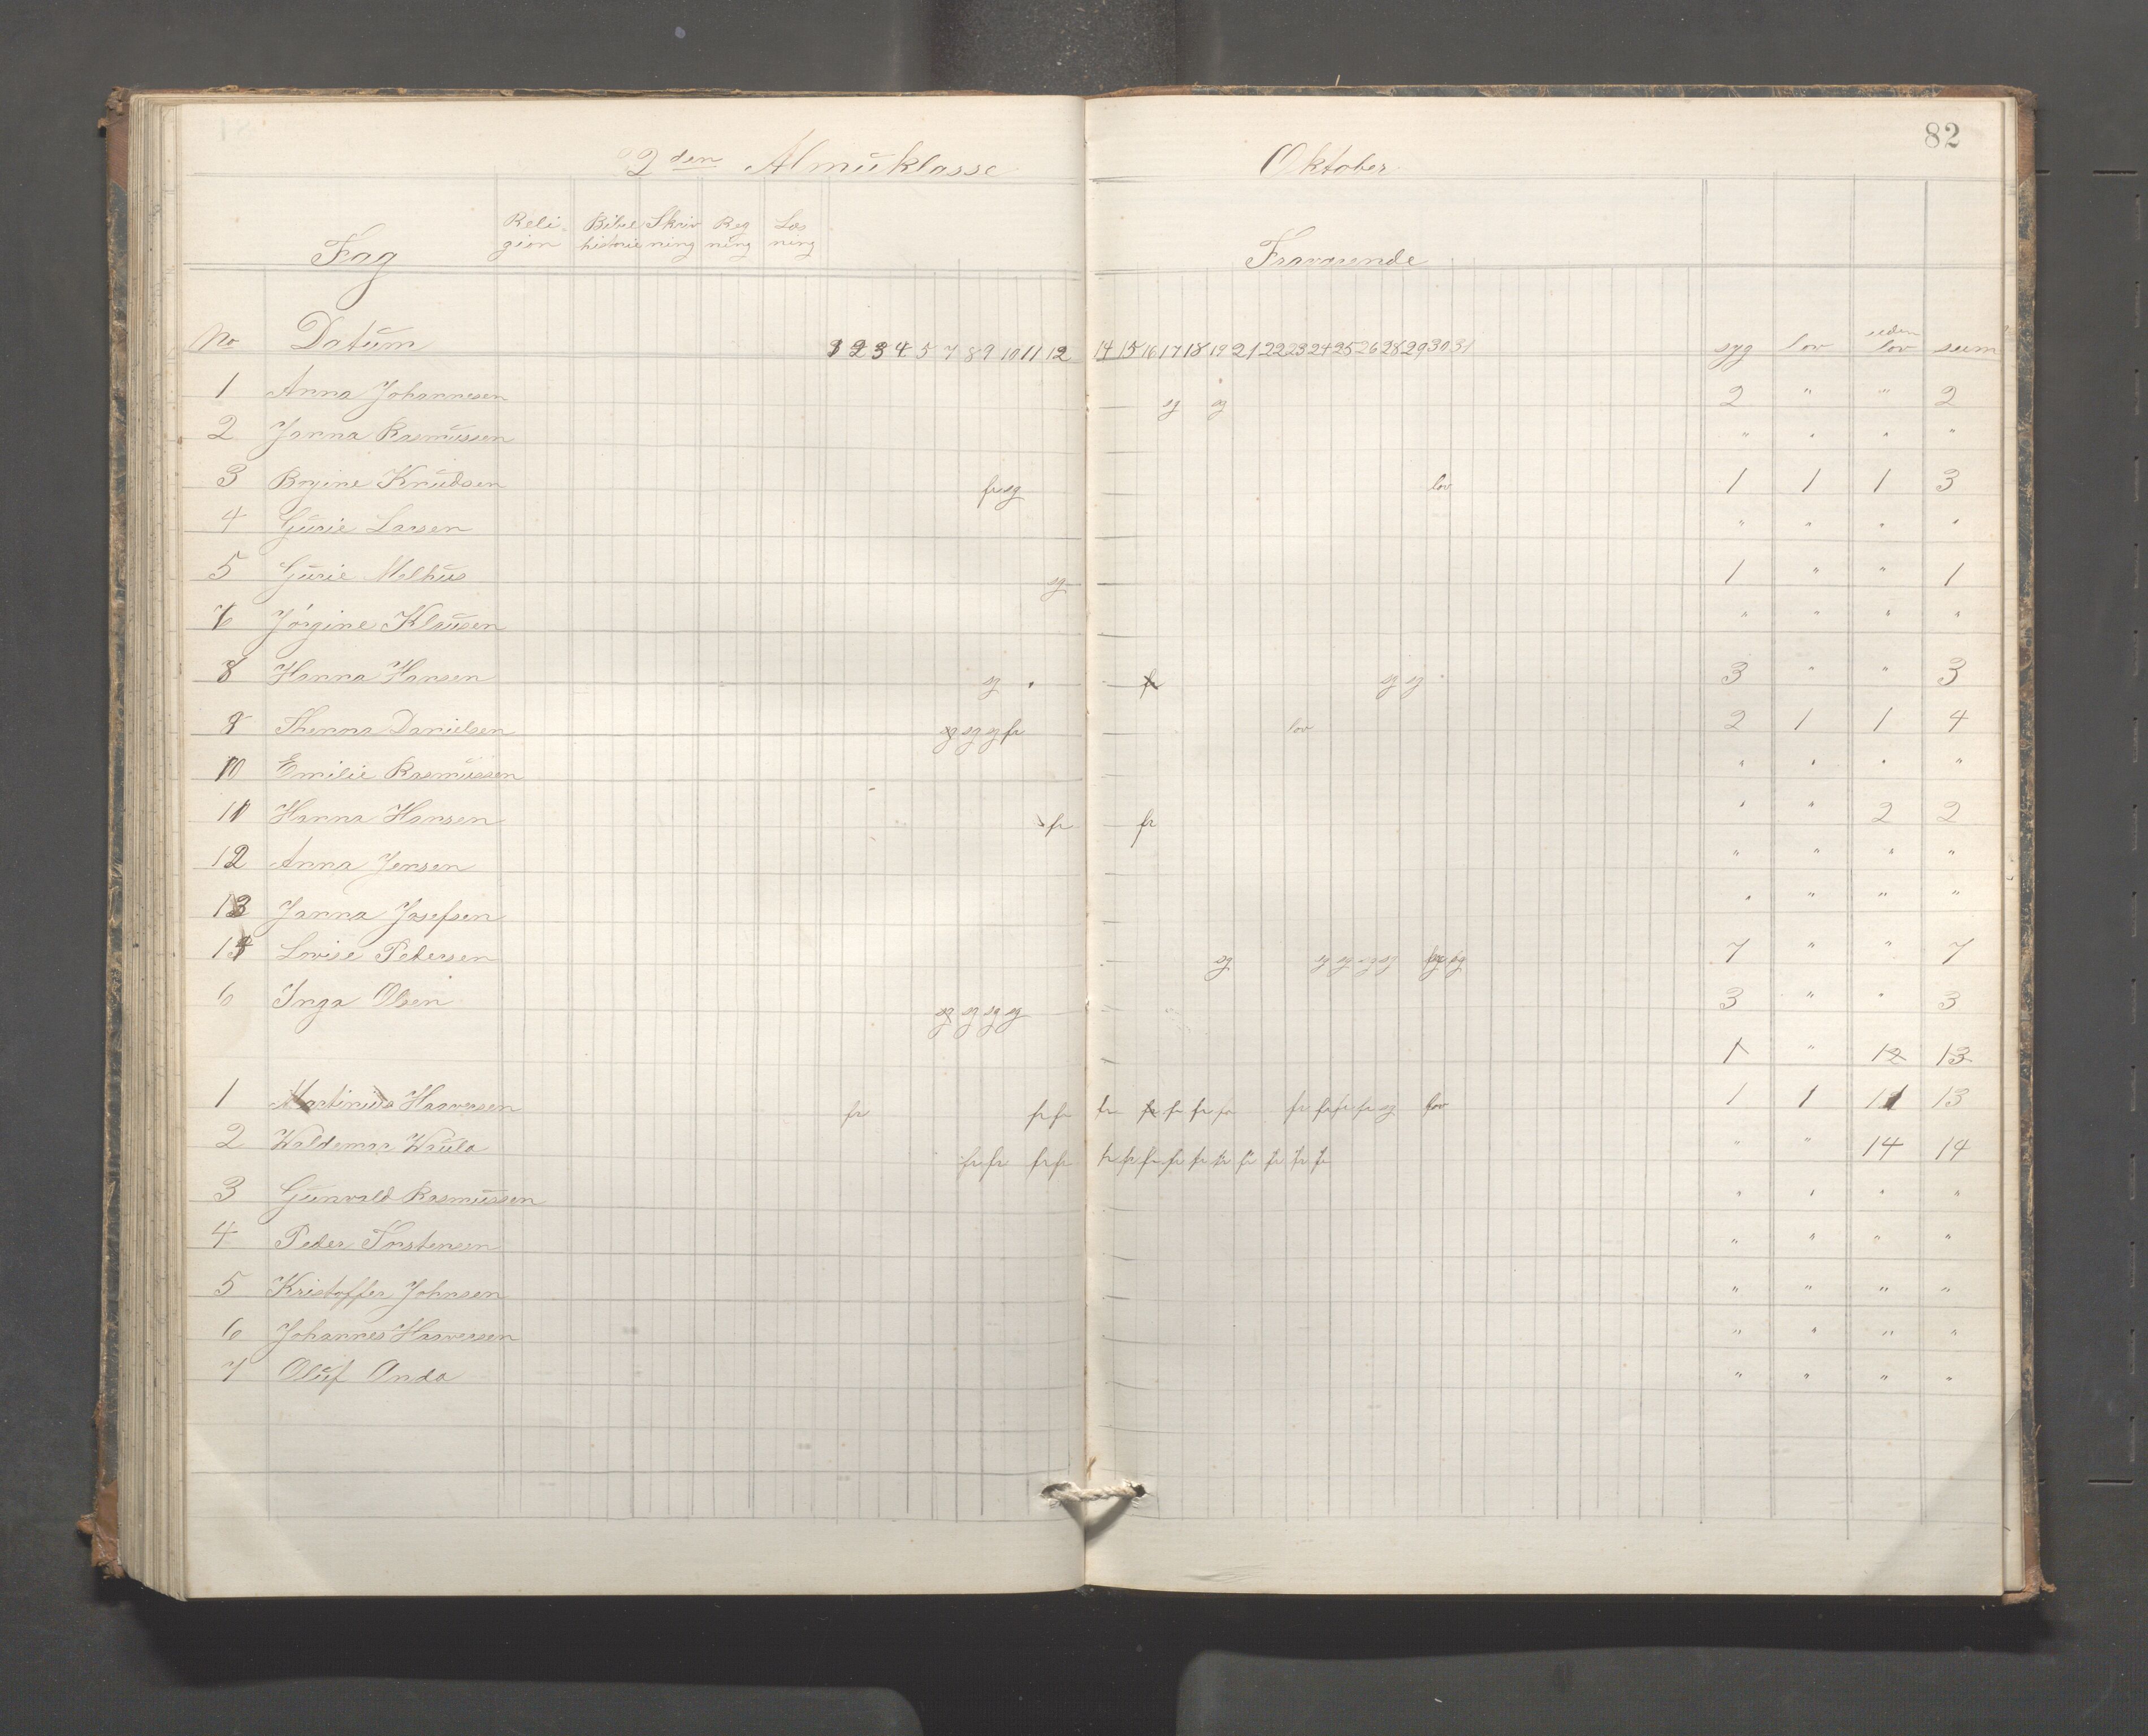 82
2den Almuklasse Oktober
Fag Reli- gion Bibel historie Skriv ning Reg ning Læs ning Fraværende
No Datum 1 2 3 4 5 7 8 9 10 11 12 14 15 16 17 18 19 21 22 23 24 25 26 28 29 30 31 syg lov uden lov sum
1 Anna Johannesen sg sg 2 " " 2
2 Janna Rasmussen " " " "
3 Bogine Knudsen fr sg lov 1 1 1 3
4 Gurie Larsen " " " "
5 Gurie Melhus sg 1 " " 1
6 Jørgine Klausen " " " "
8 Hanna Hansen sg fr sg sg 3 " " 3
9 Thenna Danielsen sg sg sg fr lov 2 1 1 4
10 Emilie Rasmussen " " " "
11 Hanna Hansen fr fr " " 2 2
12 Anna Jensen " " " "
13 Janna Josefsen " " " "
14 Lovise Petersen sg sg sg sg sg sg sg 7 " " 7
6 Inga Olsen sg sg sg sg 3 " " 3
1 " 12 13
1 Martinius Haaversen fr fr fr fr fr fr fr fr fr fr fr fr sg lov 1 1 11 13
2 Waldemar Waula fr fr fr fr fr fr fr fr fr fr fr fr fr fr " " 14 14
3 Gunvald Rasmussen " " " "
4 Peder Torstensen " " " "
5 Kristoffer Johnsen " " " "
6 Johannes Haaversen " " " "
7 Oluf Anda " " " "